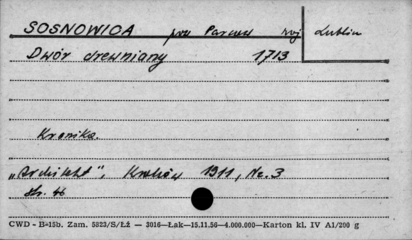 SOSNOWICA pow Parczew woj Lublin
Dwór drewniany 1713
Kronika.
"Architekt", Kraków 1911, Nr. 3
str. 46
CWD - B-15b. Zam. 5823/S/Łż — 3016—Łak—15.11.56—4.000.000—Karton kl. IV A1/200 g